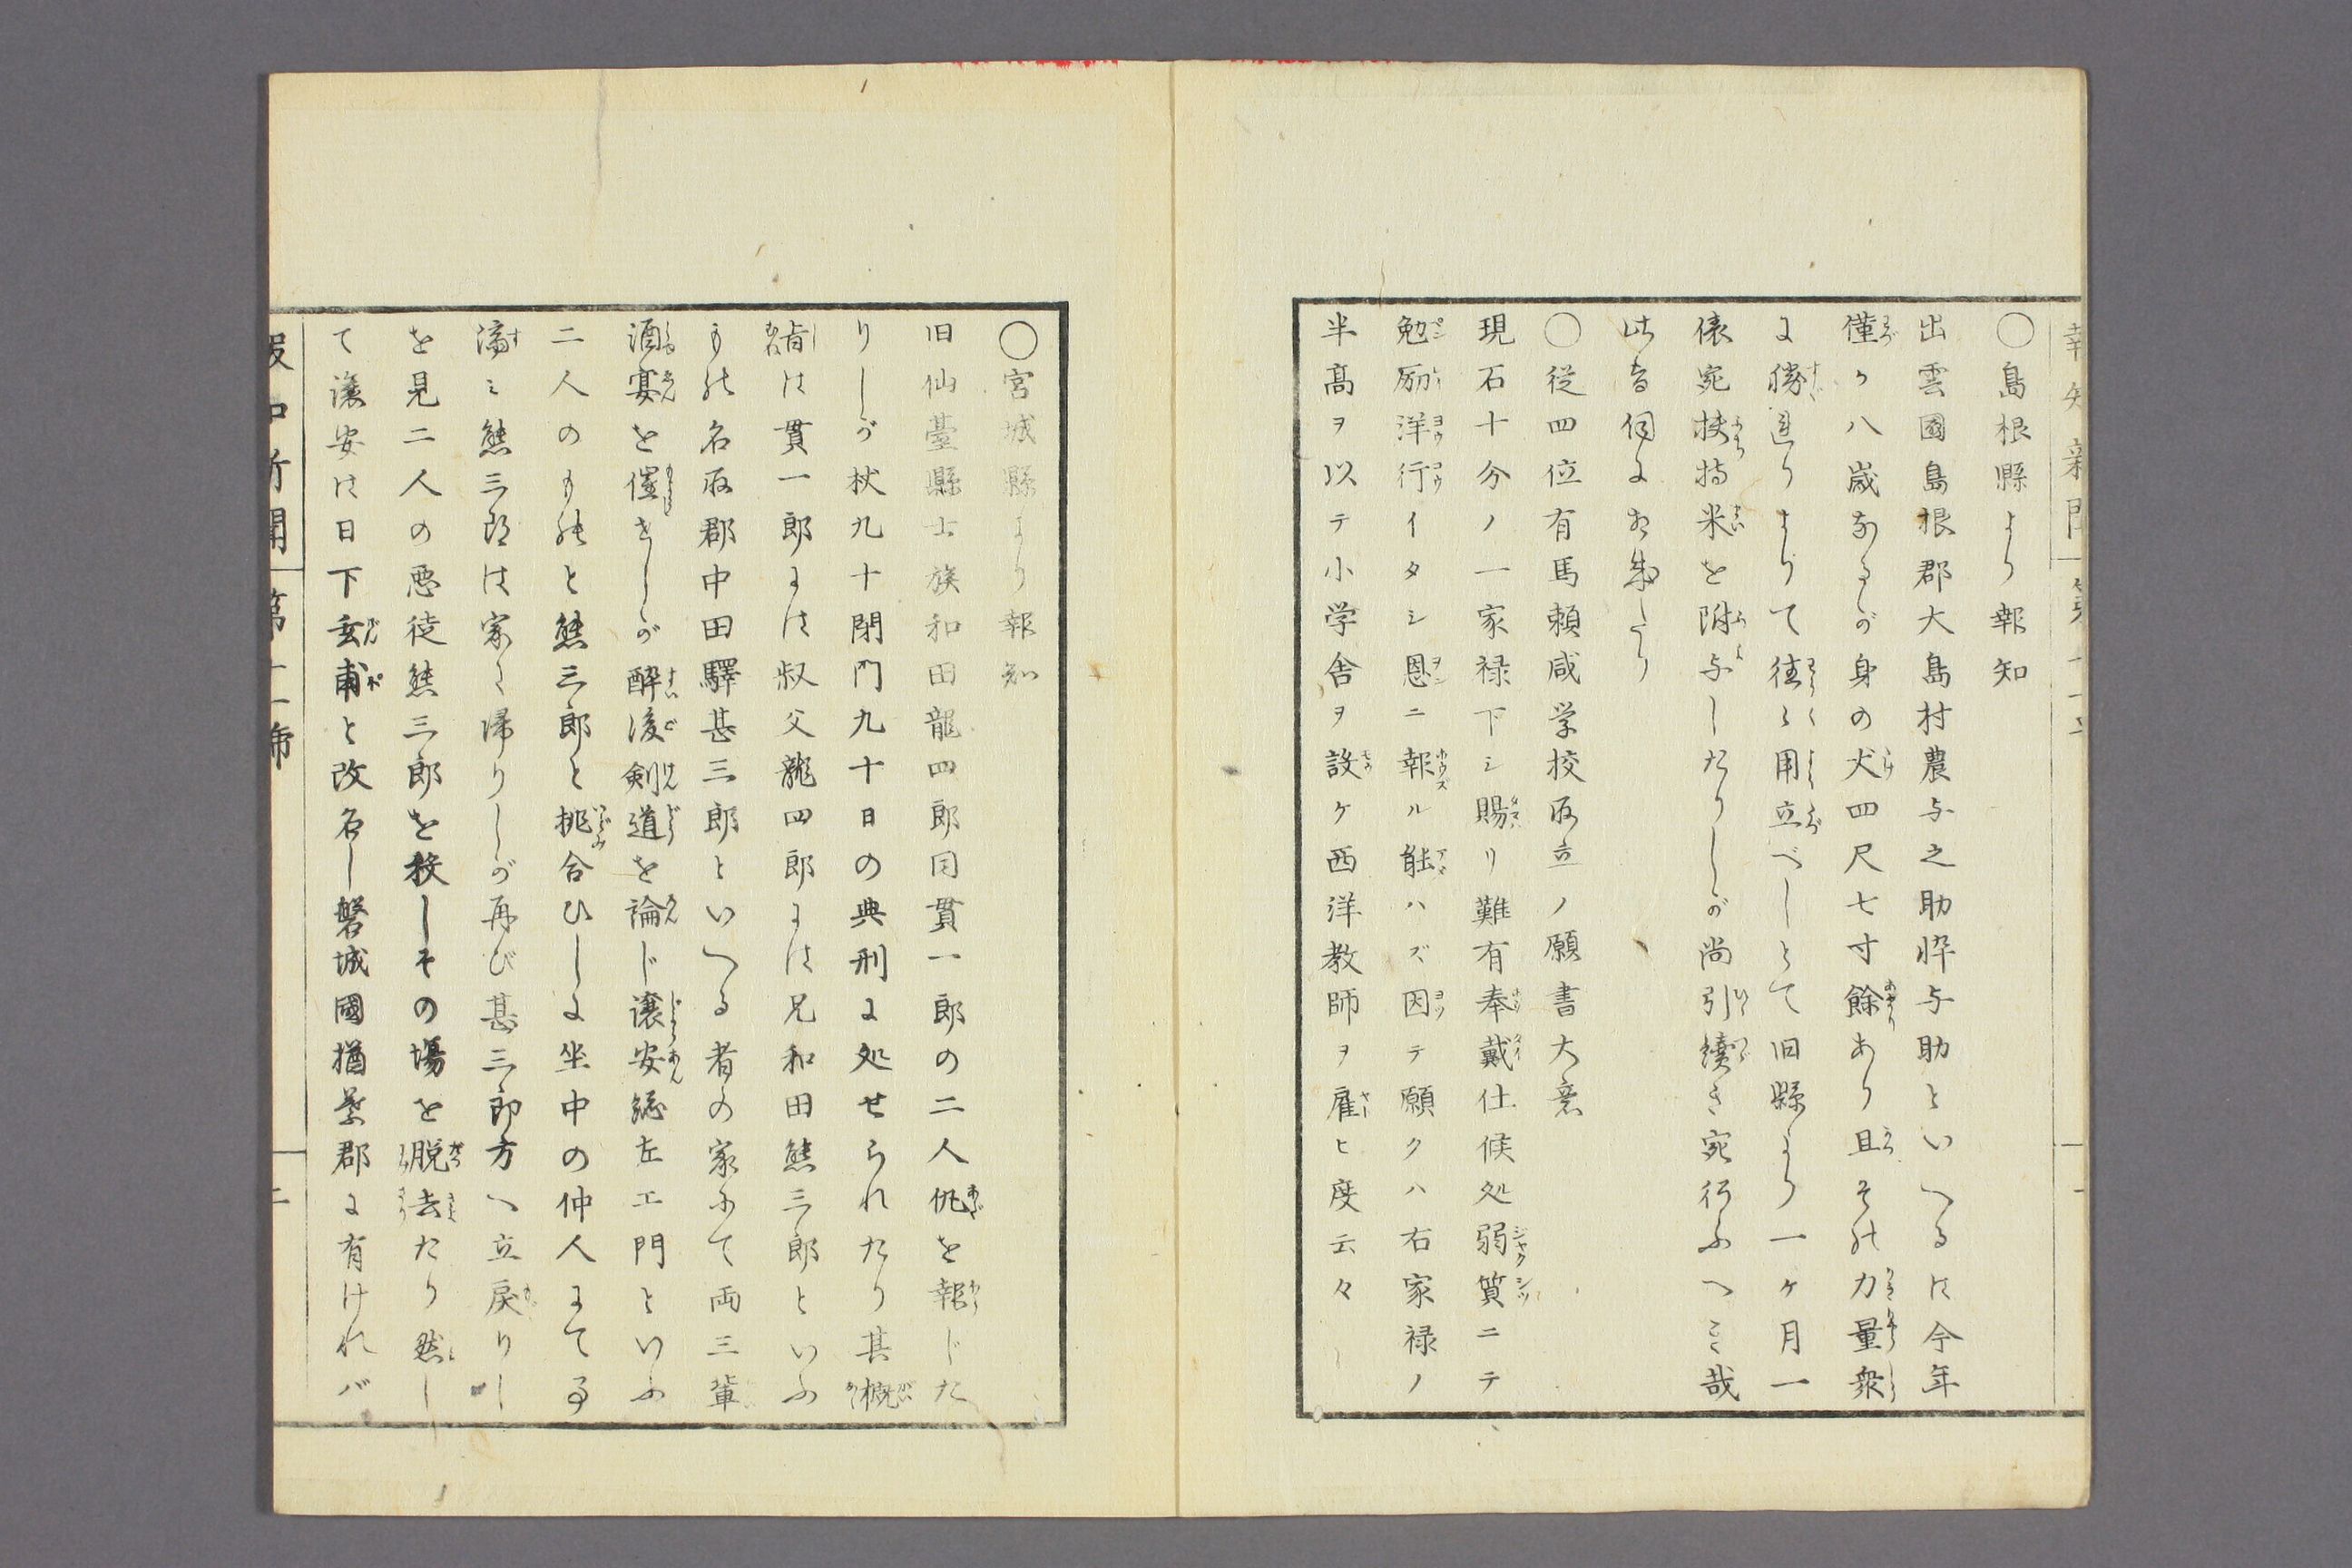 〇島根縣より報知
出雲國島根郡大島村農与之助悴与助といへるは今年
僅か八歳なるが身の丈四尺七寸餘あり且その力量衆
に勝れりよりて往々用立べしとて旧縣より一ヶ月一
俵宛扶持米を附与したりしが尚引續き宛行ふへき哉
此旨伺に相成たり
〇従四位有馬頼咸学校取立ノ願書大意
現石十分ノ一家禄下シ賜リ難有奉戴仕候処弱質ニテ
勉励洋行イタシ恩ニ報ル能ハズ因テ願クハ右家禄ノ
半高ヲ以テ小学舎ヲ設ケ西洋教師ヲ雇ヒ度云々
〇宮城縣より報知
旧仙臺縣士族和田龍四郎同貫一郎の二人仇を報じた
りしが杖九十閉門九十日の典刑に処せられたり其概
旨は貫一郎には叔父龍四郎には兄和田熊三郎といふ
もの名取郡中田驛甚三郎といへる者の家にて両三輩
酒宴を催せしが酔後剣道を論じ譲安總左エ門といふ
二人のものと熊三郎と挑合ひしに坐中の仲人にて事
濟ミ熊三郎は家に帰りしが再び甚三郎方へ立戻りし
を見二人の悪徒熊三郎を殺しその場を脱去たり然し
て譲安は日下玄甫と改名し磐城國楢葉郡に有けれバ
報知新聞 第十一號